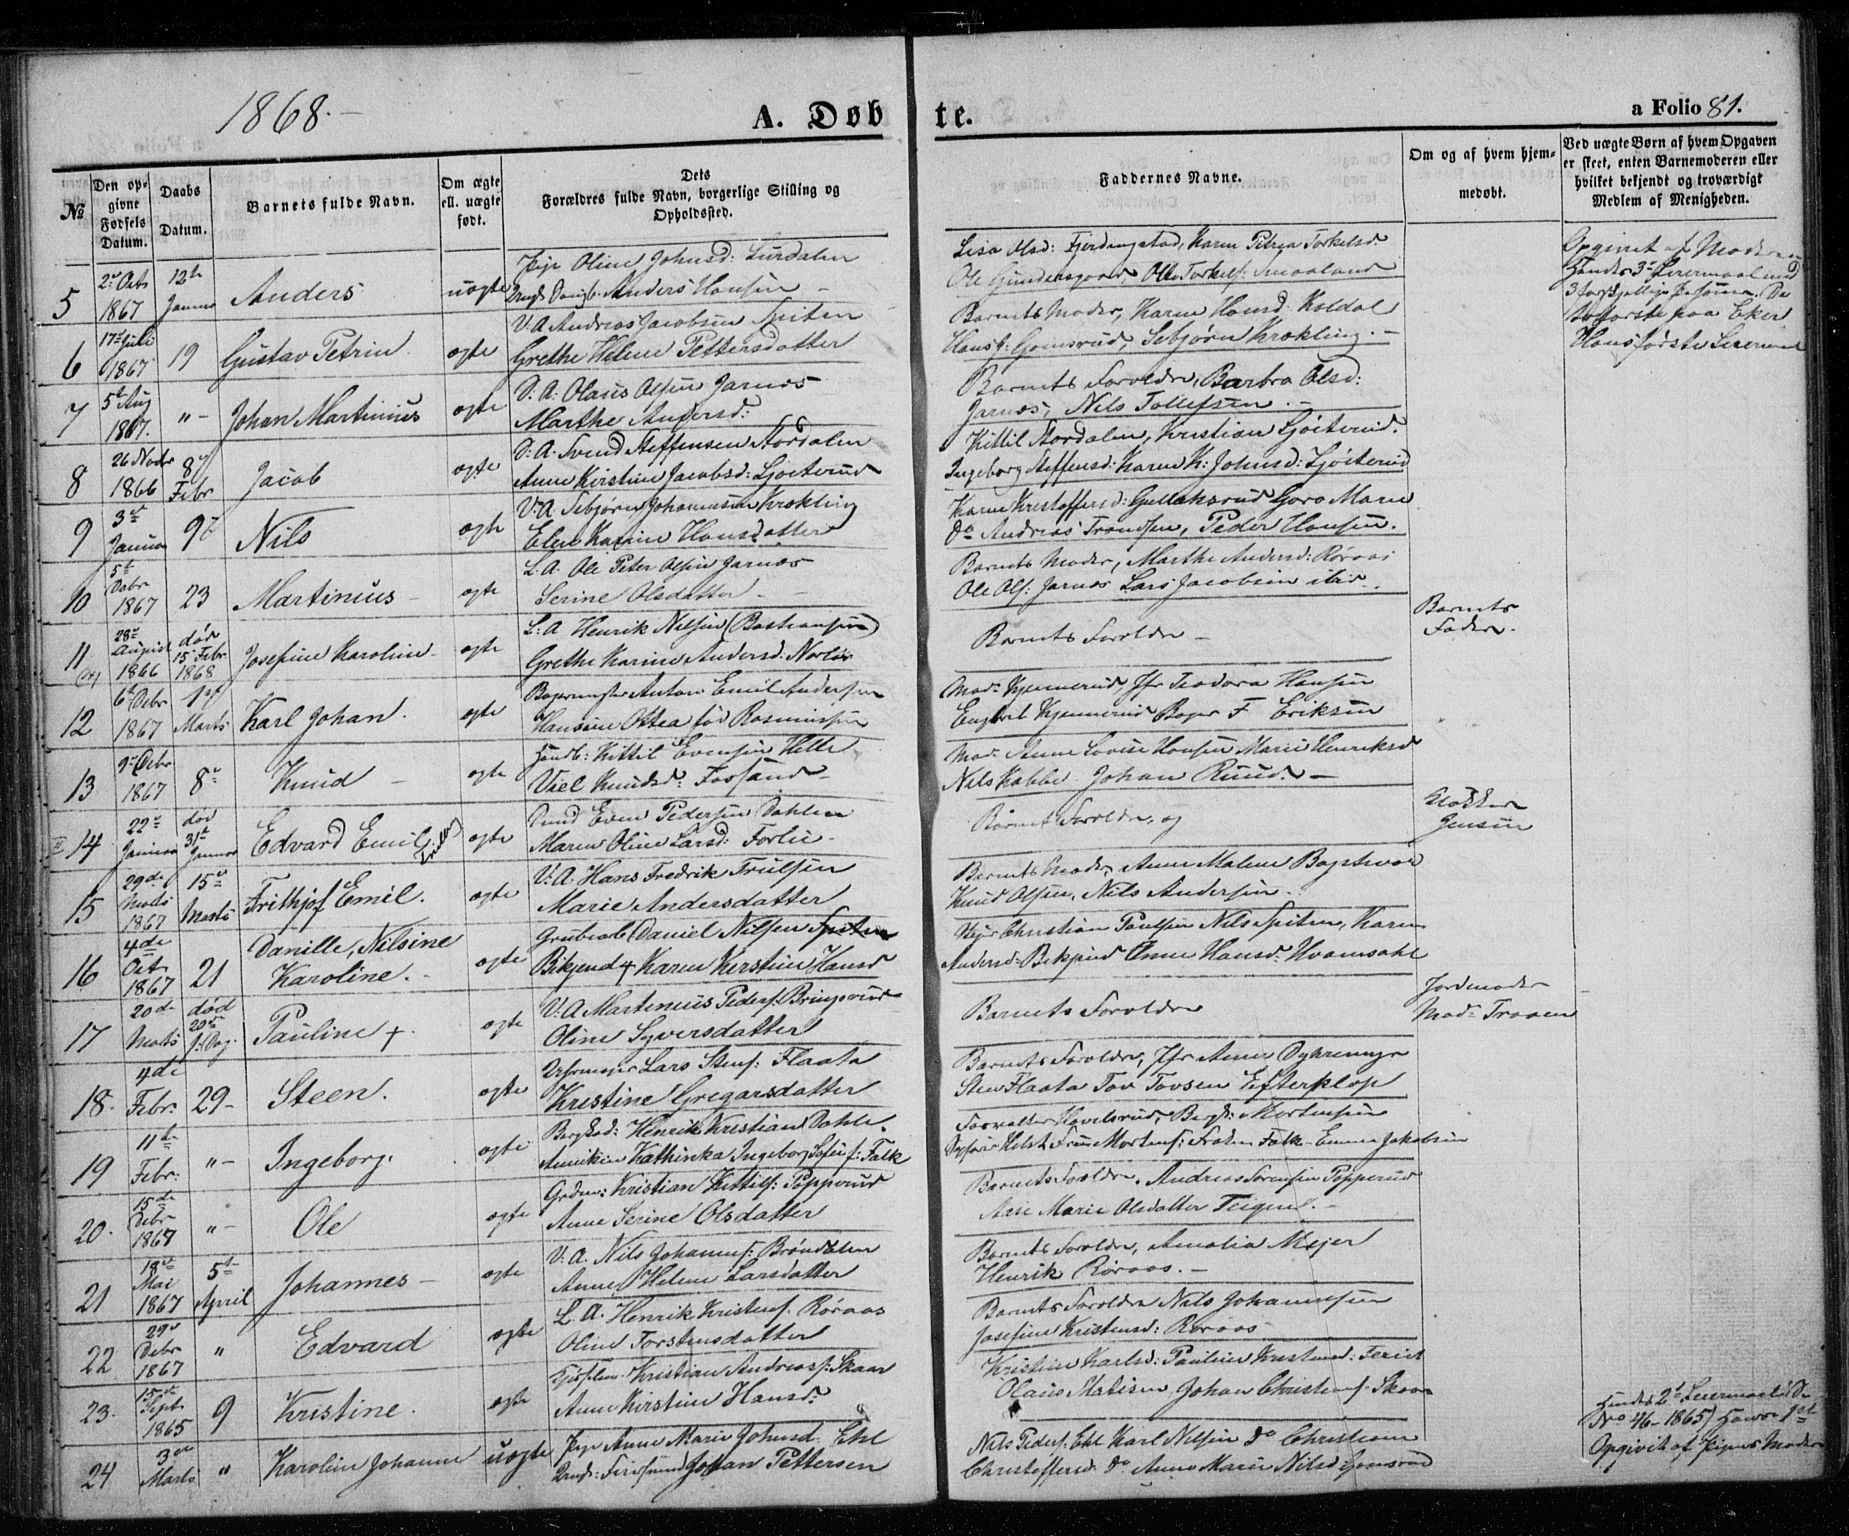 1868.-
A. Døb
te.
a Folio 81.
№
Den op-
givne
Fødsels
Datum.
Daabs
Datum.
Barnets fulde Navn.
Om ægte
ell. uægte
født.
Dets
Forældres fulde Navn, borgerlige Stilling og
Opholdssted.
Faddernes Navne.
Om og af hvem hjem-
medøbt.
Ved uægte Børn af hvem Opgaven
er skeet, enten Barnemoderen eller
hvilket bekjendt og troværdigt
Medlem af Menigheden.
5
2. Oct
1867
12te
Januar
Anders
uægte
Pige Oline Johnsd: Lurdalen
Anders Hansen -
Lisa Olsd: Karen Petrea Torkelsd
Ole Otto Torkels: Smaaland
Opgivet af Moderen
Hendes 3de Leiermaal med
3 forskjellige Personer. De
to første paa Eker
Hans første Leiermaal
6
17 Juli
1867
19
Gustav Petrin
ægte
V.A. Andreas Jacobsen Spiten
Grethe Helene Pettersdatter
Barnets Moder, Karen Hansd. Koldal
Hans Gomsrud, Sebjørn Krekling. -
7
5t Aug
1867.
"-
Johan Martinius
ægte
V.A: Olaus Olsen Jarnes
Marthe Andersd:
Barnets Foreldre, Barbro Olsd:
Jarnes, Nils Tollefsen. -
8
26 Novbr
1866
8de
Febr
Jacob
ægte
V.A. Svend Steffensen Stordalen
Anne Kirstine Jacobsd: Ljøiterud
Kittil Stordalen, Kristian Ljøiterud.
Ingeborg Steffensd: Karen K: Johnsd: Ljøiterud
9
3de
Januar
9de
Nils
ægte
V.A Sebjørn Johannesen Krekling
Elen Karine Hansdatter
Karen Kristoffersd: Gullaksrud Goro Marie
Do Andreas Trondsen, Peder Hansen.
10
5t
Decbr
1867
23
Martinius -
ægte
L. A. Ole Peter Olsen Jarnes
Serine Olsdatter -
Barnets Moder, Marthe Andersd: Røraas
Ole Ols: Jarnes Lars Jacobsen ibid.
11
28de
August
1866
død
15 Febr
1868
Josefine Karoline -
ægte
L. A Henrik Nilsen (Bastiansen)
Grethe Karine Andersd.
Barnets Foreldre -
Barnets
Fader.
12
6t Decbr
1867
1st
Marts
Karl Johan.
ægte
Bagermester Anton Emil Andersen
Hansine Ottea fød Rasmussen
Mad: Kjennerud, Jfr Teodora Hansen
Engbret Kjennerud Bager F Eriksen
13
9de Decbr
1867
8de
Knud -
ægte
Handb: Kittil Evensen Helle
Viel Knudsd: Fossand -
Mad: Anne Lovise Hansen Marie Henriksd
Nils Kabbe Johan Ruud. -
14
22de
Januar
død
31te
Januar
Edvard Emil
ægte
Even Pedersen Dahlen
Maren Oline Larsd: Forlie -
Barnets Foreldre, og
Klokker
Jensen
15
29de
Marts
1867
15de
Marts
Frithjof Emil.
ægte
V.A: Hans Fredrik Trulsen
Marie Andersdatter
Barnets Moder, Anne Malene
Knud Olsen, Nils Andersen.
16
4de
Oct
1867
21
Danille, Nilsine
Karoline. -
ægte
Grubearb Daniel Nilsen Spiten
Karen Kirstine Hansd
Christian Paulsen Nils Spiten, Karen
Andersd: Anne Hansd: Hvamsahl
17
20de
Marts
død
20de
s. Dag.
Pauline +.
ægte
V. A Martinius Peders: Bingsrud
Oline Syversdatter
Barnets Foreldre
Jordmoder
Mad: Traaen
18.
4de
Febr:
29-
Steen.
ægte
Lars Stens: Flaata
Kristine Gregarsdatter
Barnets Foreldre, Jfr Anne Dyhremyr
Sten Flaata Tov Tovsen Efterklop
19
11te
Febr:
"-
Ingeborg.
ægte
Bergkad: Henrik Kristian Dahle.
Annikin Kathinka Ingeborg Sofie f: Falk
Forvalter Havelsrud, Bergk: Mortensen
Frue Mortens: Frøken Falk - Emma Jakobsen
20.
15de
Decbr
1867
"-
Ole
ægte
Grdm: Kristian Kittils: Popperud
Anne Serine Olsdatter
Barnets Foreldre. Andreas Sørensen Popperud
Aase Marie Olsdatter Teigen. -
21
18de
Mai
1867
5te
April
Johannes -
ægte
V. A. Nils Johannes: Brøndalen
Anne Helene Larsdatter
Barnets Foreldre, Amalia Mejer
Henrik Røraas. -
22
29de
Decbr
1867
"
Edvard
ægte
L. A. Henrik Kristens: Røraas
Oline Torstensdatter
Barnets Foreldre Nils Johannesen
Josefine Kristensd: Røraas
23.
15de
Sept
1865
9
Kristine.
ægte
Kristian Andreas: Skaar
Anne Kirstine Hansd:
Kristine Karlsd: Pauline Kristensd:
Olaus Matisen Johan Christens: Skaar
24
3de
Marts
"
Karoline Johanne
uægte
Pige Anne Marie Johnsd Ekl
Johan Pettersen
Nils Peders: Ekl Karl Nilsen Do Christian
Christoffersd: Do Anne Marie Nilsd Gomsrud
Hendes 2det Leiermaal (Se
No 46-1865) Hans 1ste
Opgivet af Pigens Moder